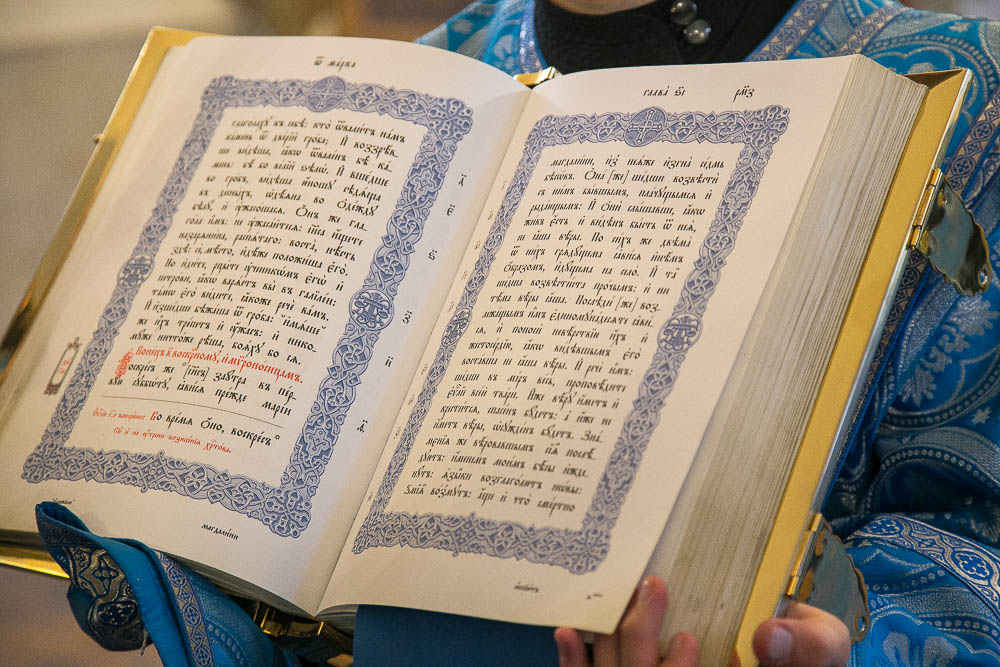 Ѿ ма́рка
глаго́лаху къ себѣ̀: кто̀ ѿвали́тъ на́мъ
ка́мень ѿ две́рій гро́ба; И҆ воззрѣ́в-
ша ви́дѣша, ꙗ҆́кѡ ѿвале́нъ бѣ̀ ка́-
мень: бѣ́ бо ве́лій ѕѣлѡ̀. И҆ вше́дше
во гро́бъ, ви́дѣша ю҆́ношу сѣдѧ́ща
въ десны́хъ, ѡ҆дѣ́ѧна во ѻ҆де́жду
бѣлу̀: и҆ ᲂу҆жасо́шасѧ. Ѻ҆́нъ же гла-
го́ла и҆̀мъ: не ᲂу҆жаса́йтесѧ: і҆и҃са и҆́щете
назарѧни́на, распѧ́таго: воста̀, нѣ́сть
здѣ̀: сѐ, мѣ́сто, и҆дѣ́же положи́ша є҆го̀.
Но и҆ди́те, рцы́те ᲂу҆ченикѡ́мъ є҆гѡ̀ и҆
петро́ви, ꙗ҆́кѡ варѧ́етъ вы̀ въ галїле́и:
та́мѡ є҆го̀ ви́дите, ꙗ҆́коже речѐ ва́мъ.
И҆ и҆зше́дшѧ бѣжа́ша ѿ гро́ба: и҆мѧ́ше
же и҆̀хъ тре́петъ и҆ ᲂу҆́жасъ: и҆ нико-
му́же ничто́же рѣ́ша, боѧ́ху бо сѧ.
Коне́цъ воскре́сному, и҆ мѵроно́сицамъ.
Воскре́съ же [і҆и҃съ] заꙋ́тра въ пе́р-
вую сꙋббѡ́тꙋ, ꙗ҆ви́сѧ пре́жде марі́и
Во вре́мѧ ѻ҆́но, воскре́съ
магдали́ни
глава̀ ѕ҃і
магдали́ни, и҆з̾ неѧ́же и҆згна̀ се́дмь
бѣсѡ́въ. Ѻ҆на̀ [же] ше́дши возвѣстѝ
съ ни́мъ бы́вшымъ, пла́чꙋщымсѧ и҆
рыда́ющымъ: И҆ ѻ҆нѝ слы́шавше, ꙗ҆́кѡ
жи́въ є҆́сть и҆ ви́дѣнъ бы́сть ѿ неѧ̀,
не ꙗ҆́ша вѣ́ры. По си́хъ же двѣма̀
ѿ ни́хъ грѧдꙋ́щема ꙗ҆ви́сѧ и҆нѣ́мъ
ѻ҆́бразомъ, и҆дꙋ́щема на село̀. И҆ та̑
ше́дша возвѣсти́ста про́чымъ: и҆ ни
тѣ́ма вѣ́ры ꙗ҆́ша. Послѣди́ [же] воз-
лежа́щымъ и҆̀мъ є҆диномꙋна́десѧте ꙗ҆ви́-
сѧ, и҆ поносѝ невѣ́рствїю и҆́хъ и҆
жестосе́рдїю, ꙗ҆́кѡ ви́дѣвшымъ є҆го̀
воста́вша не ꙗ҆́ша вѣ́ры. И҆ речѐ и҆̀мъ:
ше́дше въ мі́ръ ве́сь, проповѣ́дите
є҆ѵⷢ҇лїе все́й тва́ри. И҆́же вѣ́рꙋ и҆́метъ и҆
крести́тсѧ, спасе́нъ бꙋ́детъ: а҆ и҆́же не
и҆́метъ вѣ́ры, ѡ҆сꙋжде́нъ бꙋ́детъ. Зна́-
мєнїѧ же вѣ́ровавшымъ сїѧ̑ послѣ́-
дꙋютъ: и҆́менемъ мои́мъ бѣ́сы и҆ждє-
нꙋ́тъ: ꙗ҆зы́ки возглаго́лютъ нѡ́вы:
Ѕмїѧ̑ во́змꙋтъ: а҆́ще и҆ что̀ сме́ртно